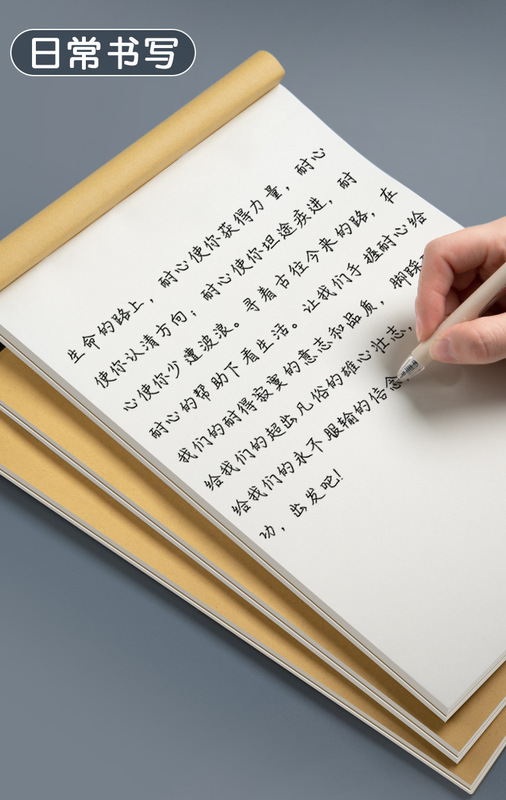 日常书写
生命的路上，耐心使你获得力量，耐心
使你认清方向；耐心使你坦途疾进，耐
心使你少遭波浪。寻着古往今来的路，在
耐心的帮助下看生活。让我们手握耐心给
我们的耐得寂寞的意志和品质，脚踩
给我们的超出凡俗的雄心壮志，
给我们的永不服输的信念
功，出发吧！